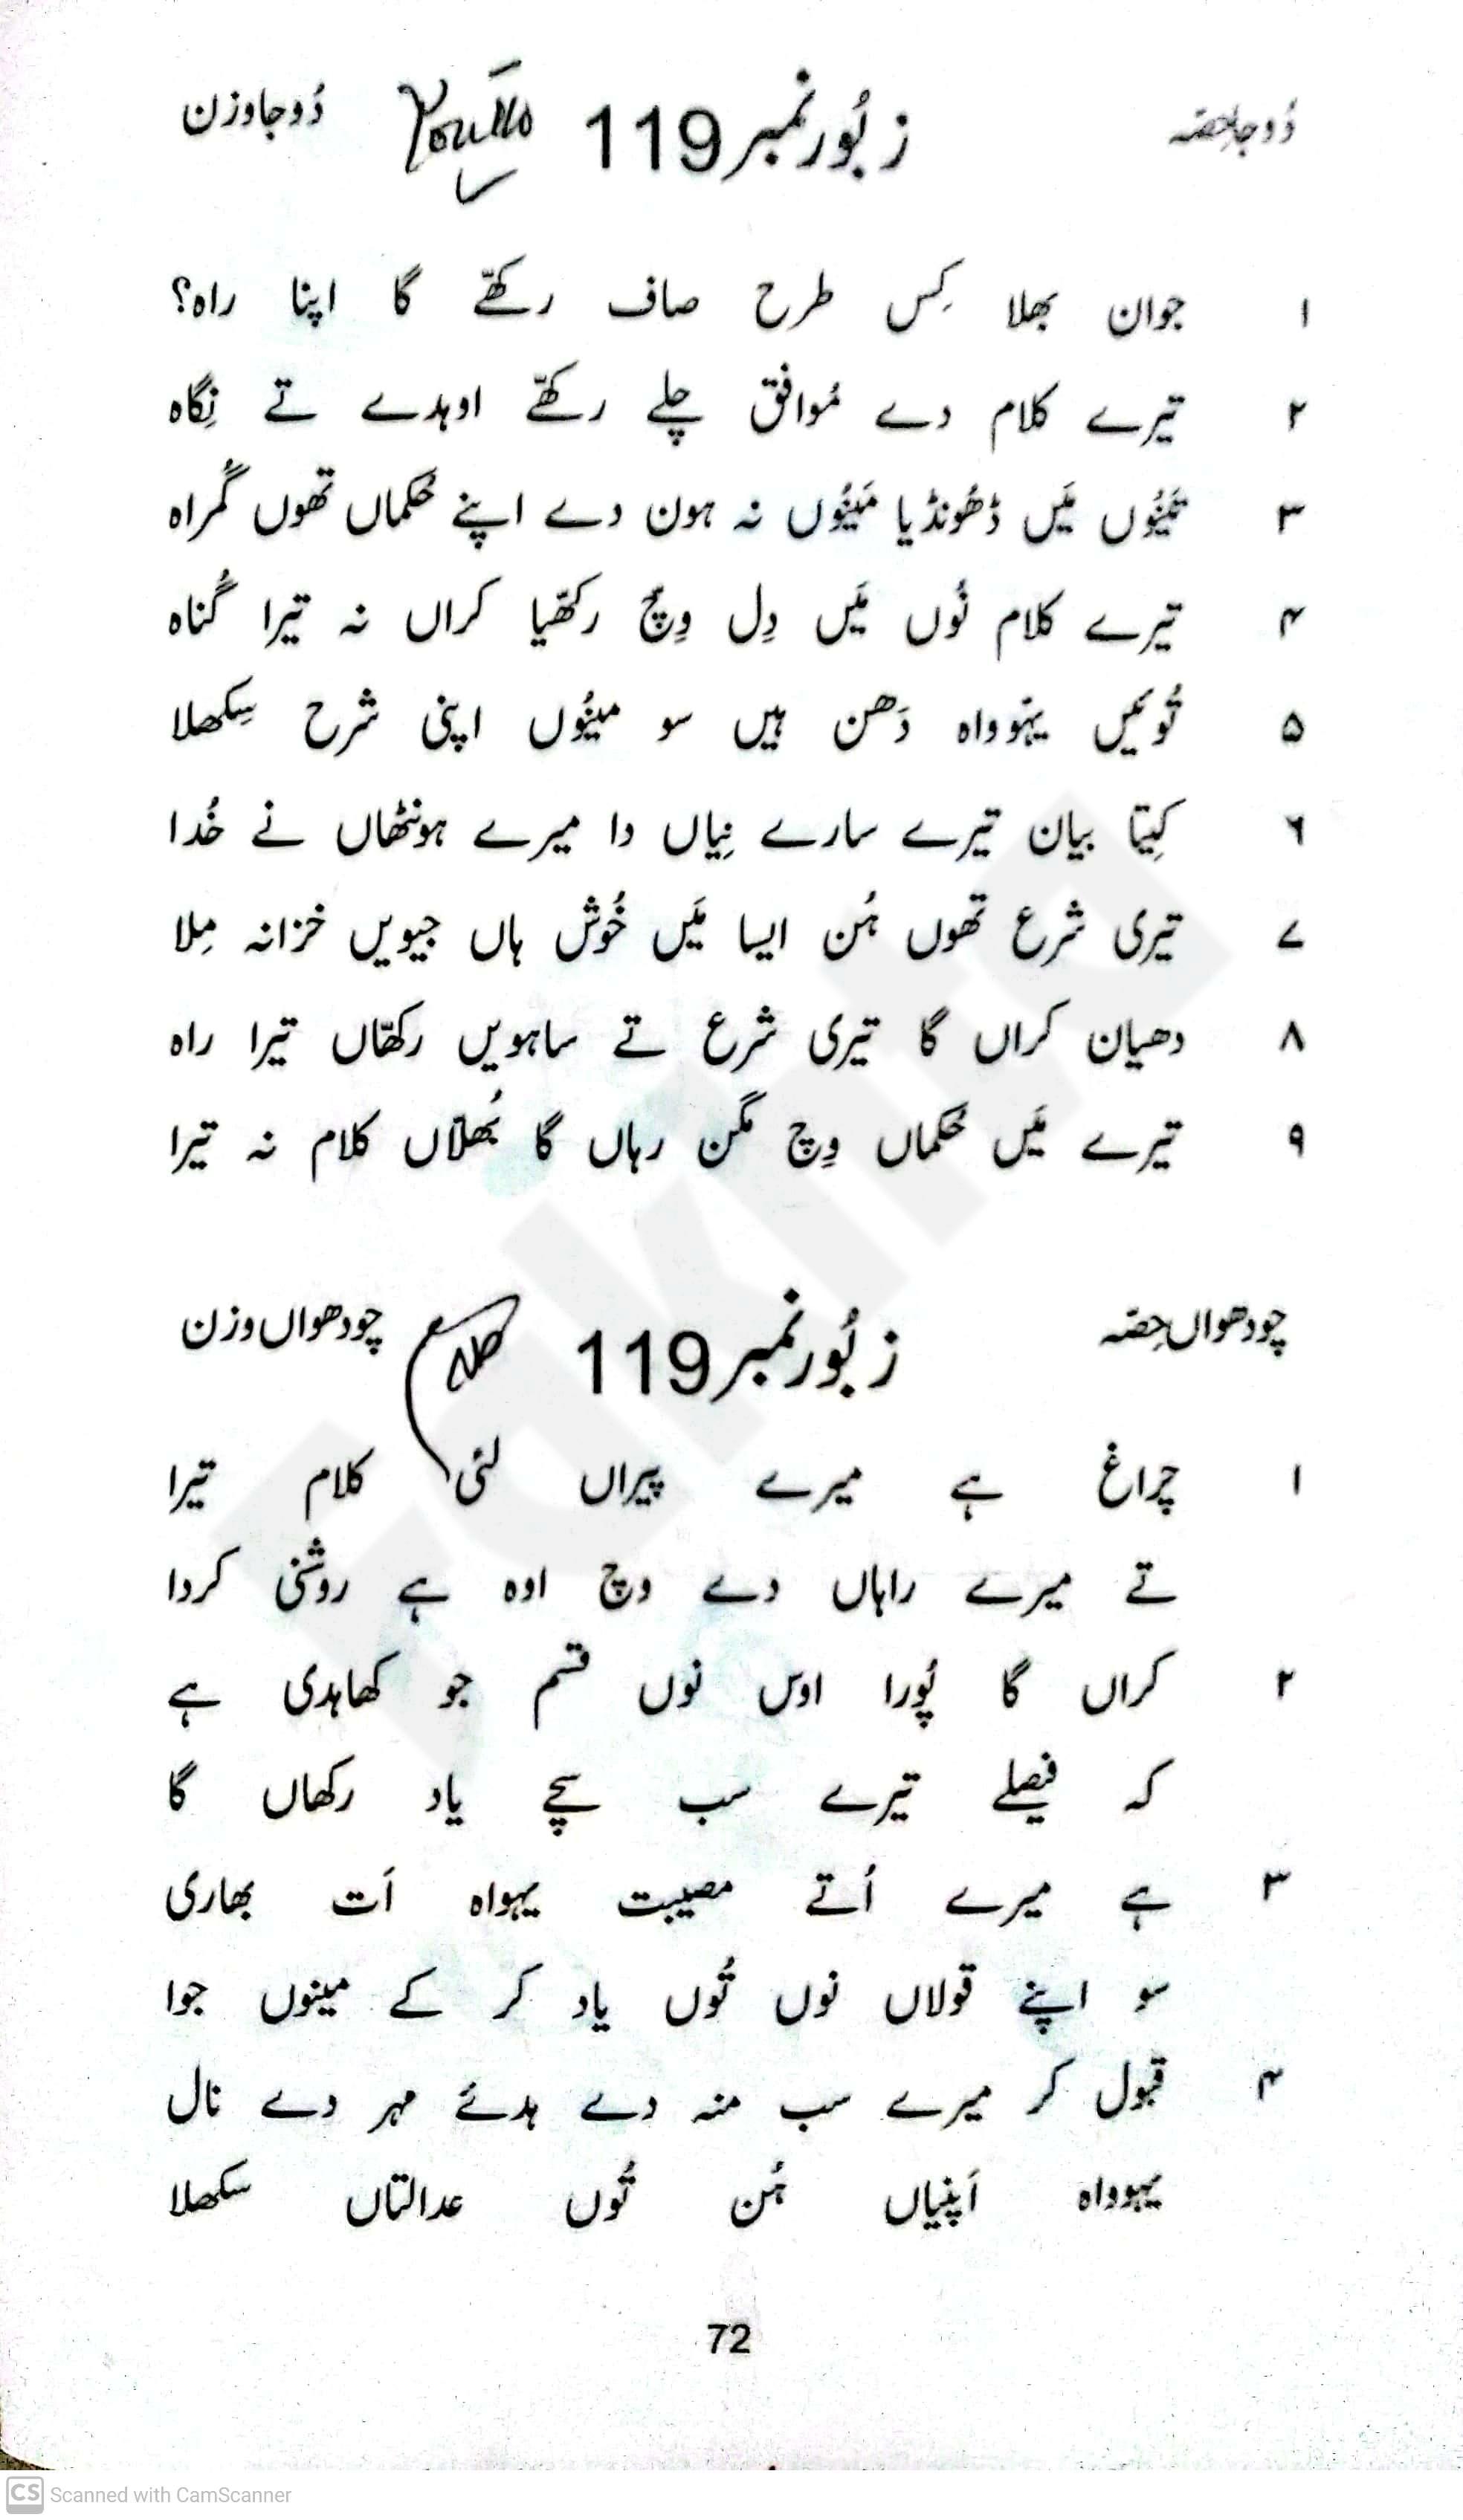 دُوجا حِصّہ زبُور نمبر 119 دُوجا وزن
۱ جوان بھلا کِس طرح صاف رکھّے گا اپنا راہ؟
۲ تیرے کلام دے مُوافق چلے رکھّے اوہدے تے نِگاہ
۳ تَینُوں مَیں ڈھُونڈیا مَینُوں نہ ہون دے اپنے حُکماں تھوں گُمراہ
۴ تیرے کلام نُوں مَیں دِل وِچّ رکھّیا کراں نہ تیرا گُناہ
۵ تُوئیں یہُوواہ دَھن ہیں سو مینُوں اپنی شرح سِکھلا
۶ کِیتا بیان تیرے سارے نِیاں دا میرے ہونٹھاں نے خُدا
۷ تیری شرع تھوں ہُن ایسا مَیں خُوش ہاں جیویں خزانہ مِلا
۸ دھیان کراں گا تیری شرع تے ساہویں رکھّاں تیرا راہ
۹ تیرے مَیں حُکماں وِچ مگن رہاں گا بُھلّاں کلام نہ تیرا
چودھواں حِصّہ زبُور نمبر 119 چودھواں وزن
۱ چراغ ہے میرے پیراں لئی کلام تیرا
تے میرے راہاں دے وچ اوہ ہے روشنی کردا
۲ کراں گا پُورا اوس نوں قسم جو کھاہدی ہے
کہ فیصلے تیرے سب سچے یاد رکھاں گا
۳ ہے میرے اُتے مصیبت یہواہ اَت بھاری
سو اپنے قولاں نوں تُوں یاد کر کے مینوں جوا
۴ قبول کر میرے سب منہ دے ہدئے مہر دے نال
یہوواہ اَپنیاں ہُن تُوں عدالتاں سکھلا
72
CS Scanned with CamScanner